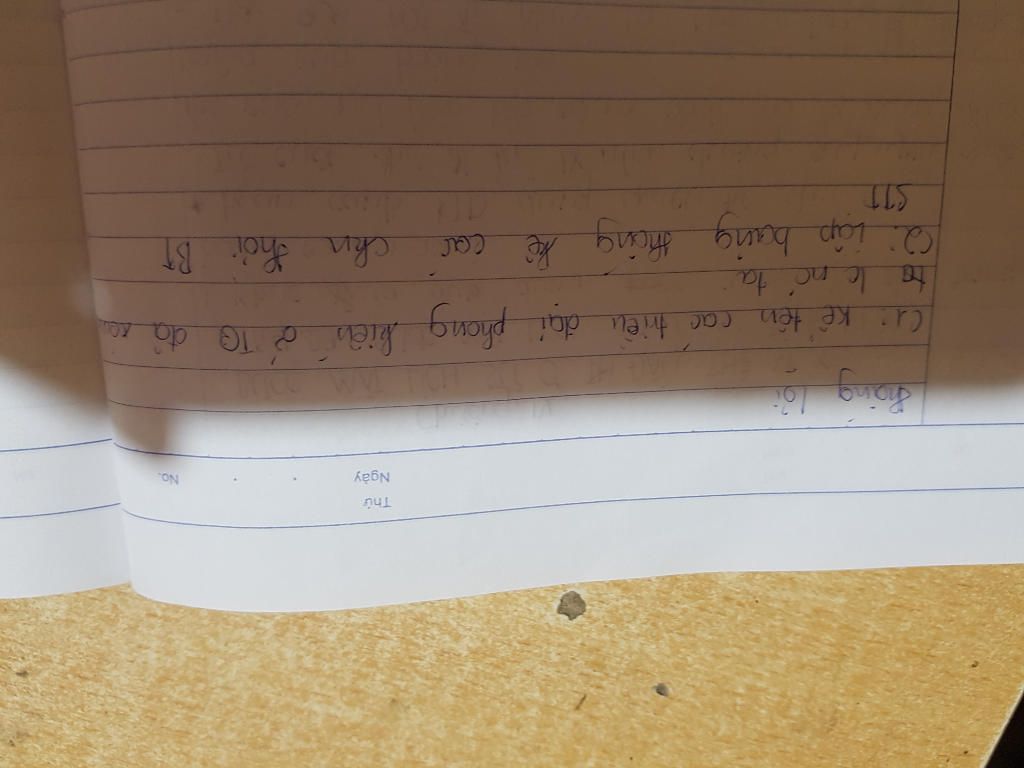 Thứ
Ngày . . No.
thắng lợi
C1: kể tên các triều đại phong kiến ở TQ đã
to lc nc ta
C2: Lập bảng thống kê các chn thời BT
STT